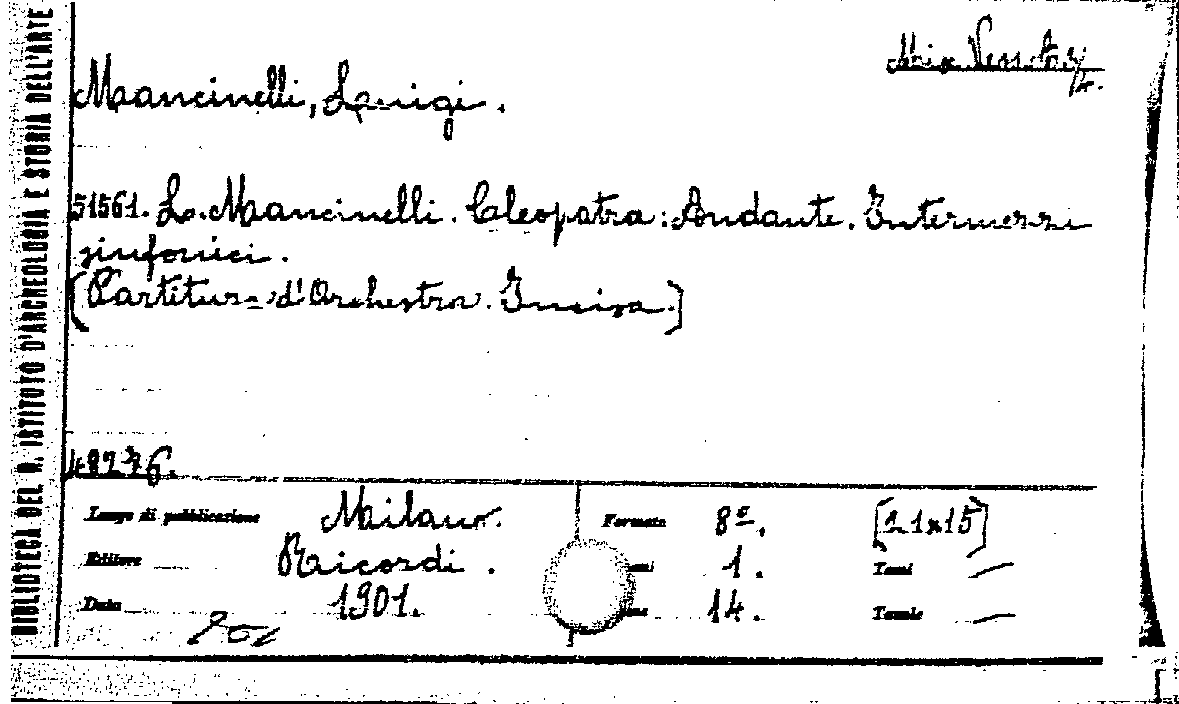 BIBLIOTECA DEL R. ISTITUTO D'ARCHEOLOGIA E STORIA DELL'ARTE
Mancinelli, Luigi.
51561. L. Mancinelli. Cleopatra: Andante. Intermezzi
sinfonici.
[Partitura d'Orchestra. Incisa.]
48276.
Luogo di pubblicazione Milano. Formato 8º. [21x15]
Editore Ricordi. 1. Tomi —
Data 1901. 14. Tavole —